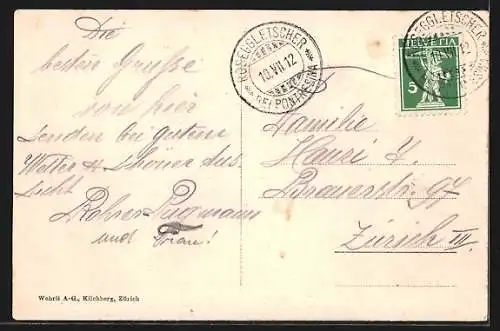 Die
besten Grüsse
von hier
senden bei gutem
Wetter & schöner Aus
sicht
Rohrer
und Frau!
ROSEGGLETSCHER
10.VII.12
BEI PONTRESINA
HELVETIA
5
ROSEGGLETSCHER
Familie
Hauri
Brauerstr. 97
Zürich III.
Wehrli A-G., Kilchberg, Zürich